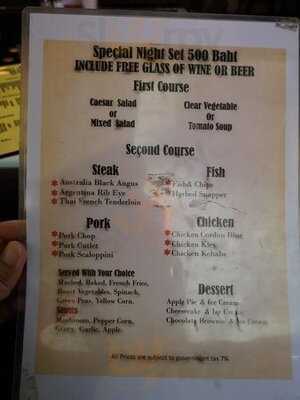 Special Night Set 500 Baht
INCLUDE FREE GLASS OF WINE OR BEER
First Course
Caesar Salad
or
Mixed Salad
Clear Vegetable
Or
Tomato Soup
Second Course
Steak
* Australia Black Angus
* Argentina Rib Eye
* Thai French Tenderloin
Fish
* Fish & Chips
* Herbed Snapper
Pork
* Pork Chop
* Pork Cutlet
* Pork Scaloppini
Chicken
* Chicken Cordon Blue
* Chicken Kiev
* Chicken Kebabs
Served With Your Choice
Mashed, Baked, French Fries,
Roast Vegetables, Spinach,
Green Peas, Yellow Corn.
Sauces
Mushroom, Pepper Corn,
Gravy, Garlic, Apple.
Dessert
Apple Pie & Ice Cream
Cheesecake & Ice Cream
Chocolate Brownie & Ice Cream
All Prices are subject to government tax 7%